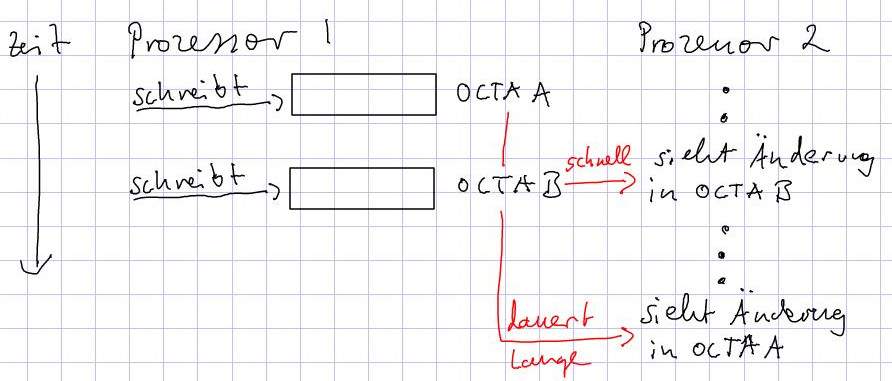 Zeit Prozessor 1 Prozessor 2
schreibt OCTA A
schreibt OCTA B schnell sieht Änderung
in OCTA B
dauert sieht Änderung
lange in OCTA A